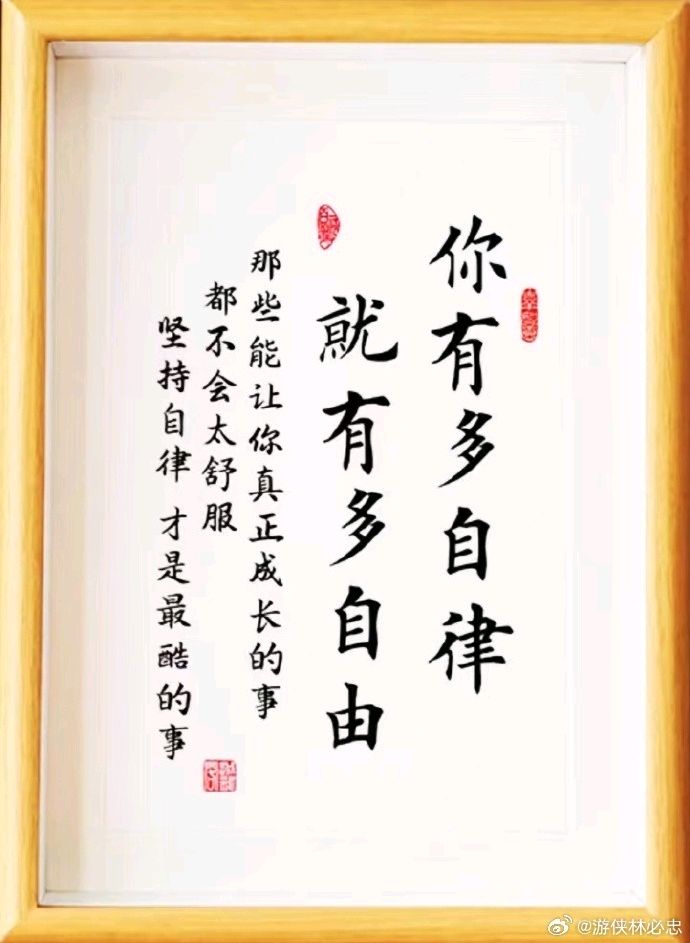 你有多自律
就有多自由
那些能让你真正成长的事
都不会太舒服
坚持自律 才是最酷的事
@游侠林必忠